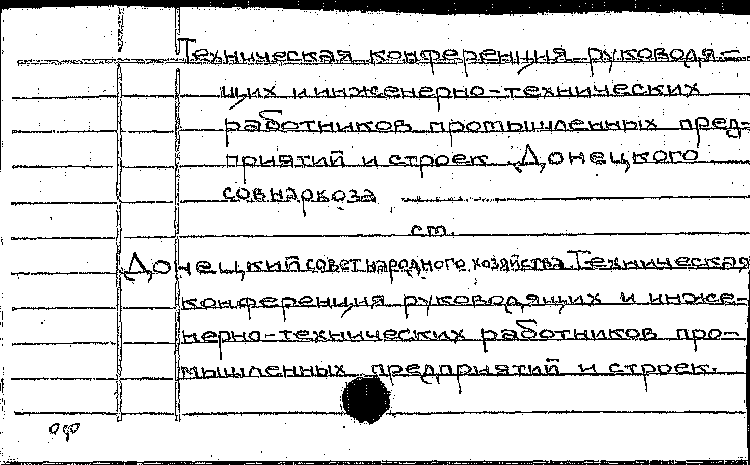 Техническая конференция руководя-
щих и инженерно-технических
работников промышленных пред-
приятий и строек Донецкого
совнаркоза
см.
Донецкий совет народного хозяйства. Техническая
конференция руководящих и инже-
нерно-технических работников про-
мышленных предприятий и строек.